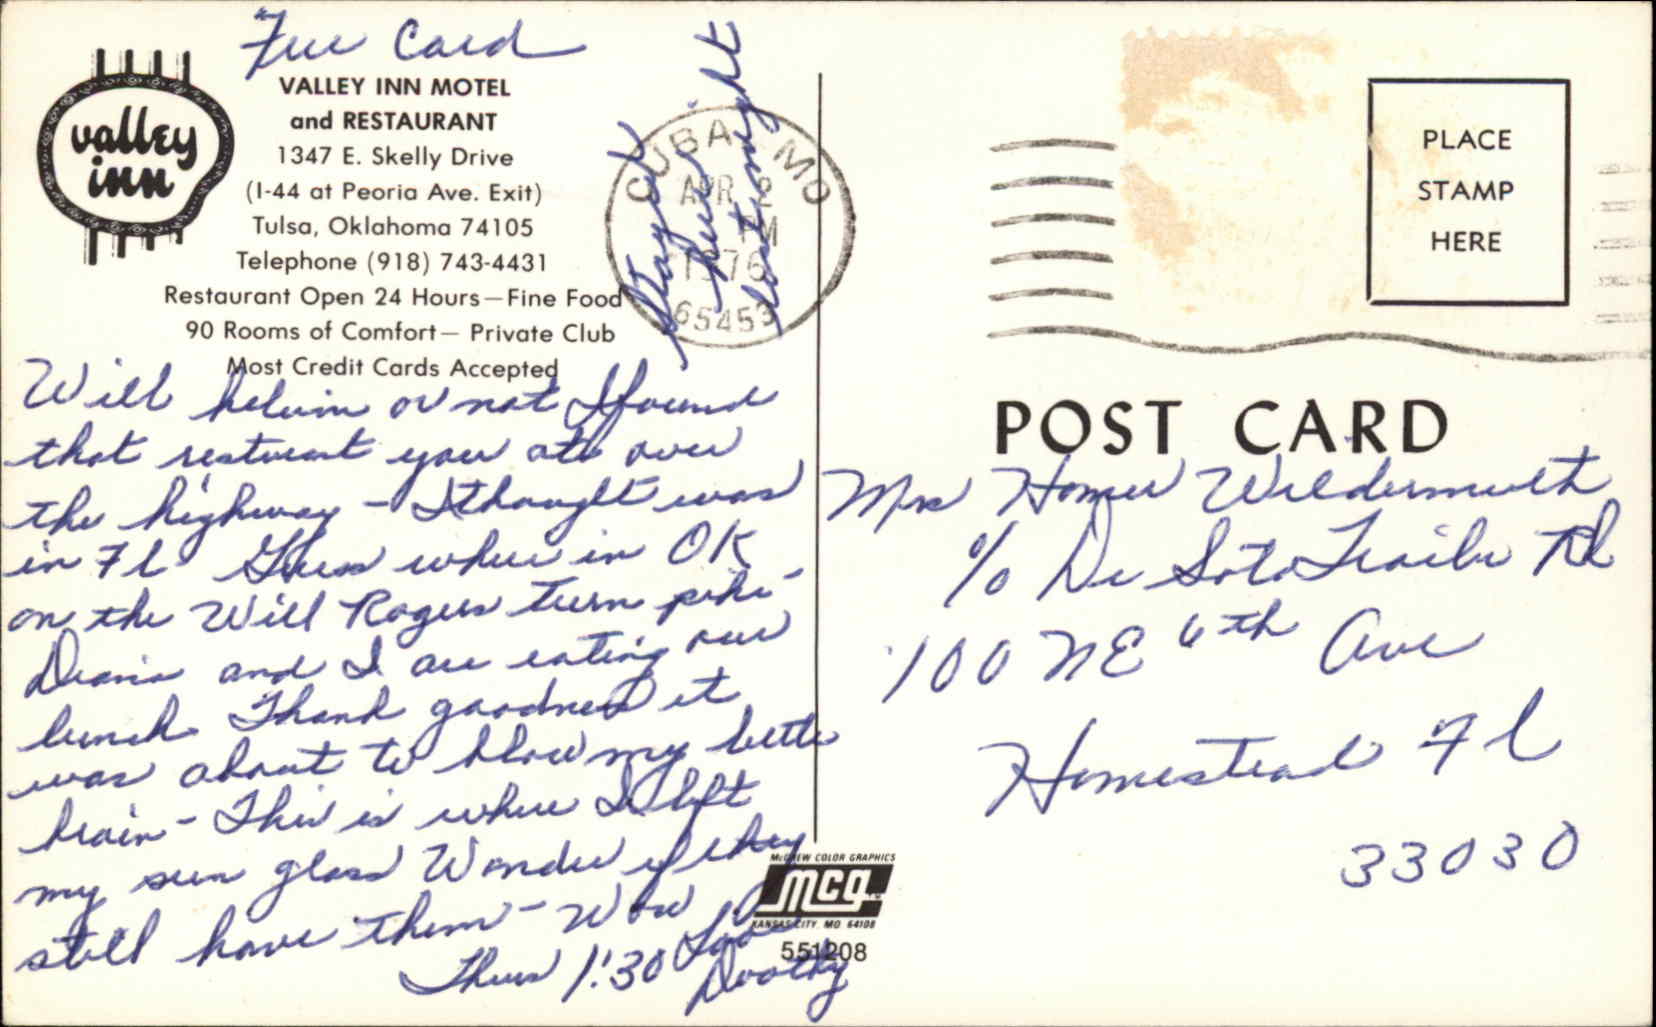 Free Card
valley
inn
VALLEY INN MOTEL
and RESTAURANT
1347 E. Skelly Drive
(I-44 at Peoria Ave. Exit)
Tulsa, Oklahoma 74105
Telephone (918) 743-4431
Restaurant Open 24 Hours—Fine Food
90 Rooms of Comfort— Private Club
Most Credit Cards Accepted
Stayed
here
last night
CUBA MO
APR 2
PM
1976
65453
PLACE
STAMP
HERE
POST CARD
Will or not I found
that you ate over
the highway - I thought was
in Fl Guess where in OK
on the Will Rogers turn pike
and I are eating our
lunch Thank goodness it
was about to blow my little
brain - This is where I left
my sun glass Wonder if they
still have them - Wow
Thurs 1:30 Love
Doothy
Mrs Homer Wildermuth
c/o De Soto Trailer Pk
100 NE 6th Ave
Homestead Fl
33030
McGREW COLOR GRAPHICS
mcg
KANSAS CITY, MO 64108
551208